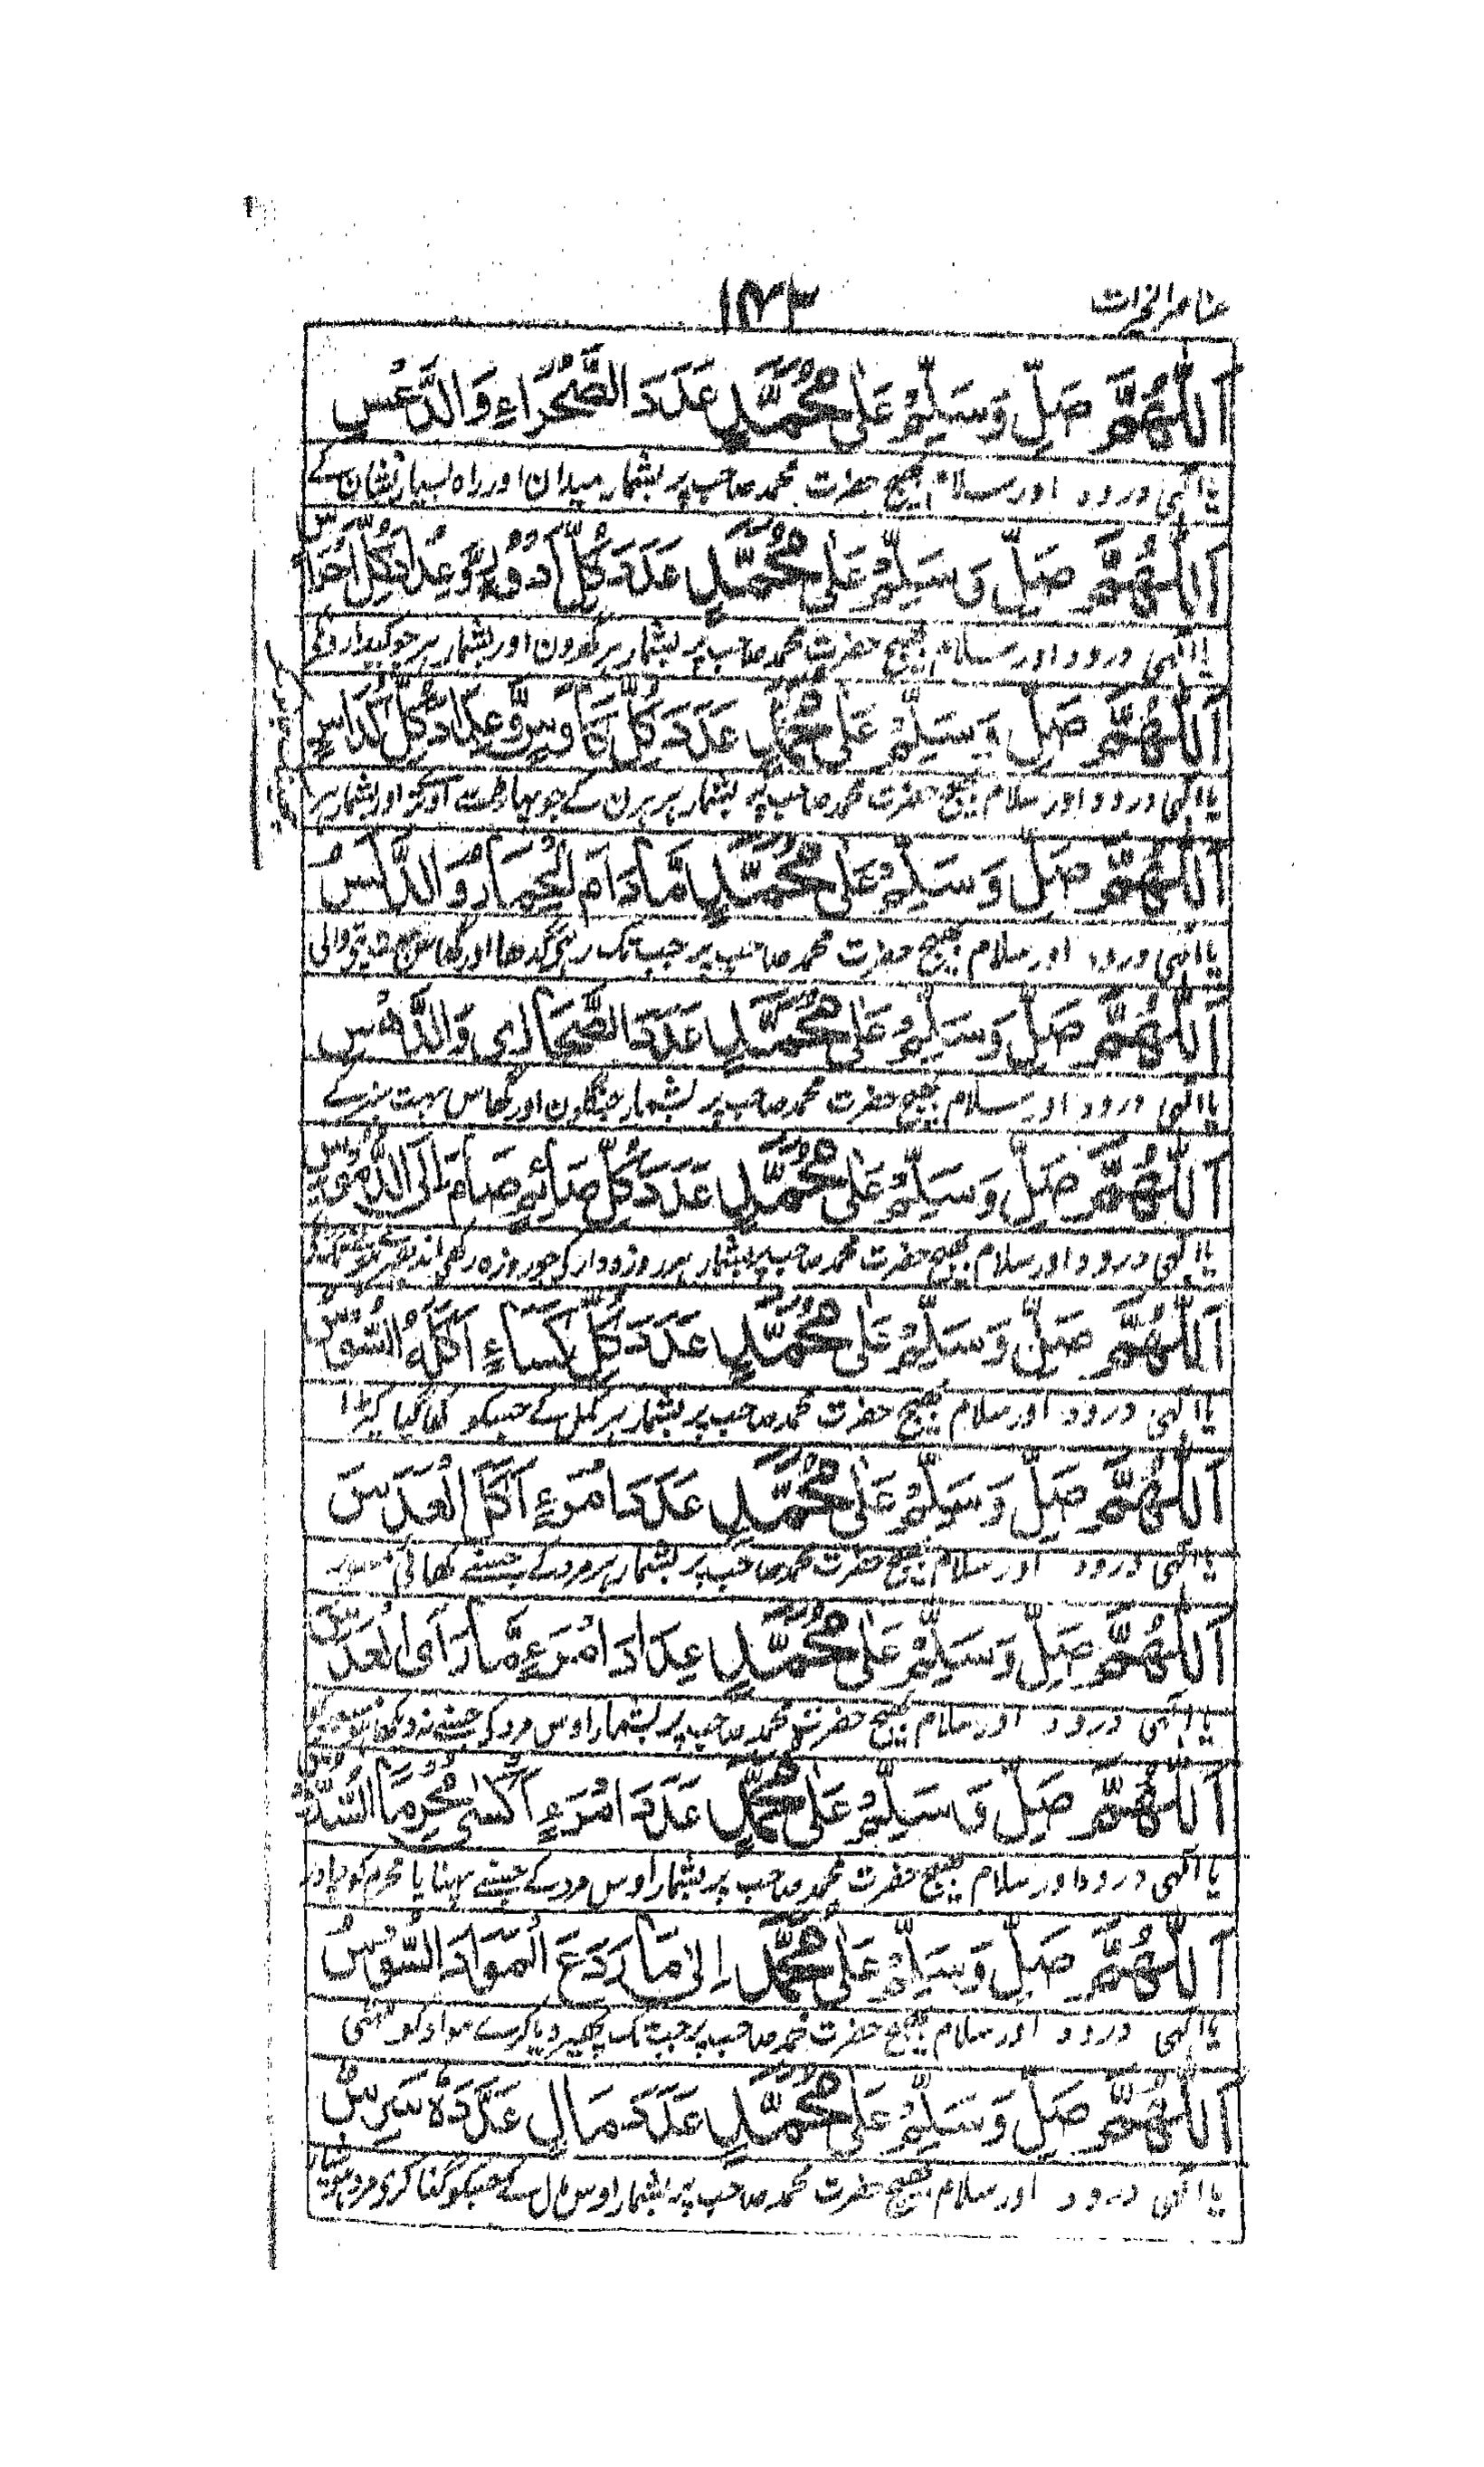 عناصر الخیرات
١٤٣
اَللّٰهُمَّ صَلِّ وَسَلِّمْ عَلٰى مُحَمَّدٍ عَدَدَ الصَّحْرَاءِ وَالدَّعْسِ
یا الٰہی درود اور سلام بھیج حضرت محمد صاحب پر بشمار میدان اور راہ بسیار نشان کے
اَللّٰهُمَّ صَلِّ وَسَلِّمْ عَلٰى مُحَمَّدٍ عَدَدَ كُلِّ وَعِدَادَ كُلِّ
یا الٰہی درود اور سلام بھیج حضرت محمد صاحب پر بشمار ہر اور بشمار ہر چوکیدارونکی
اَللّٰهُمَّ صَلِّ وَسَلِّمْ عَلٰى مُحَمَّدٍ عَدَدَ كُلِّ وَّعِدَادَ كُلِّ
یا الٰہی درود اور سلام بھیج حضرت محمد صاحب پر بشمار ہر ہرن کے جو اور بشمار ہر
اَللّٰهُمَّ صَلِّ وَسَلِّمْ عَلٰى مُحَمَّدٍ مَّا دَامَ الْحِمَارُ وَالدَّلَسُ
یا الٰہی درود اور سلام بھیج حضرت محمد صاحب پر جب تک رہی گدھا اور گھاس
اَللّٰهُمَّ صَلِّ وَسَلِّمْ عَلٰى مُحَمَّدٍ عَدَدَ الصَّحَارٰى وَالدَّهْسِ
یا الٰہی درود اور سلام بھیج حضرت محمد صاحب پر بشمار جنگلون اور گھاس بہت سبز کے
اَللّٰهُمَّ صَلِّ وَسَلِّمْ عَلٰى مُحَمَّدٍ عَدَدَ كُلِّ صَائِمٍ صَامَ إِلَى
یا الٰہی درود اور سلام بھیج حضرت محمد صاحب پر بشمار ہر روزہ دار کی جو روزہ رکھی
اَللّٰهُمَّ صَلِّ وَسَلِّمْ عَلٰى مُحَمَّدٍ عَدَدَ كُلِّ كِسَاءٍ اَكَلَهُ السُّوْسُ
یا الٰہی درود اور سلام بھیج حضرت محمد صاحب پر بشمار ہر کمل کے جسکو کھا گیا کیڑا
اَللّٰهُمَّ صَلِّ وَسَلِّمْ عَلٰى مُحَمَّدٍ عَدَدَ امْرَءٍ اَكَلَ الْعَدَسَ
یا الٰہی درود اور سلام بھیج حضرت محمد صاحب پر بشمار ہر مرد کے جسنے کھائی مسور
اَللّٰهُمَّ صَلِّ وَسَلِّمْ عَلٰى مُحَمَّدٍ عِدَادَ امْرَءٍ مَّا رَاَى الْعَدَسَ
یا الٰہی درود اور سلام بھیج حضرت محمد صاحب پر بشمار اوس مرد کی جسنے نہ دیکھا
اَللّٰهُمَّ صَلِّ وَسَلِّمْ عَلٰى مُحَمَّدٍ عَدَدَ امْرَءٍ اَكْسٰى مُحْرِمًا
یا الٰہی درود اور سلام بھیج حضرت محمد صاحب پر بشمار اوس مرد کے جسنے پہنایا محرم کو چادر
اَللّٰهُمَّ صَلِّ وَسَلِّمْ عَلٰى مُحَمَّدٍ اِلٰى مَا رَدَعَ الْمَوَادَّ السُّوْسُ
یا الٰہی درود اور سلام بھیج حضرت محمد صاحب پر جب تک پھیر دیا کرے مواد کو
اَللّٰهُمَّ صَلِّ وَسَلِّمْ عَلٰى مُحَمَّدٍ عَدَدَ مَالٍ عَدَّدَهٗ
یا الٰہی درود اور سلام بھیج حضرت محمد صاحب پر بشمار اوس مال کے جسکو گنا کری مرد